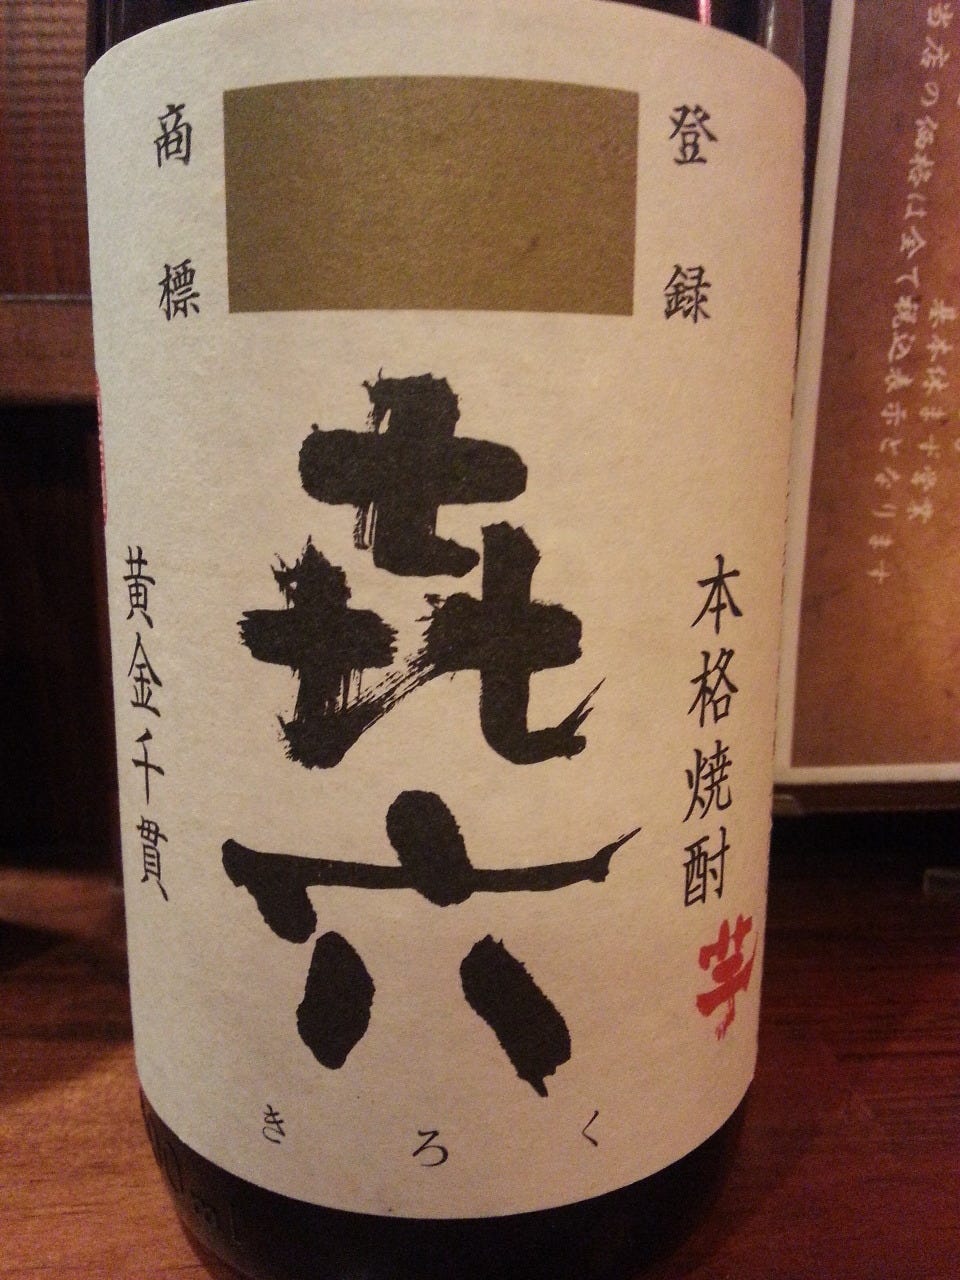 当店の価格は全て税込表示となります
登録
商標
㐂六
きろく
本格焼酎
芋
黄金千貫